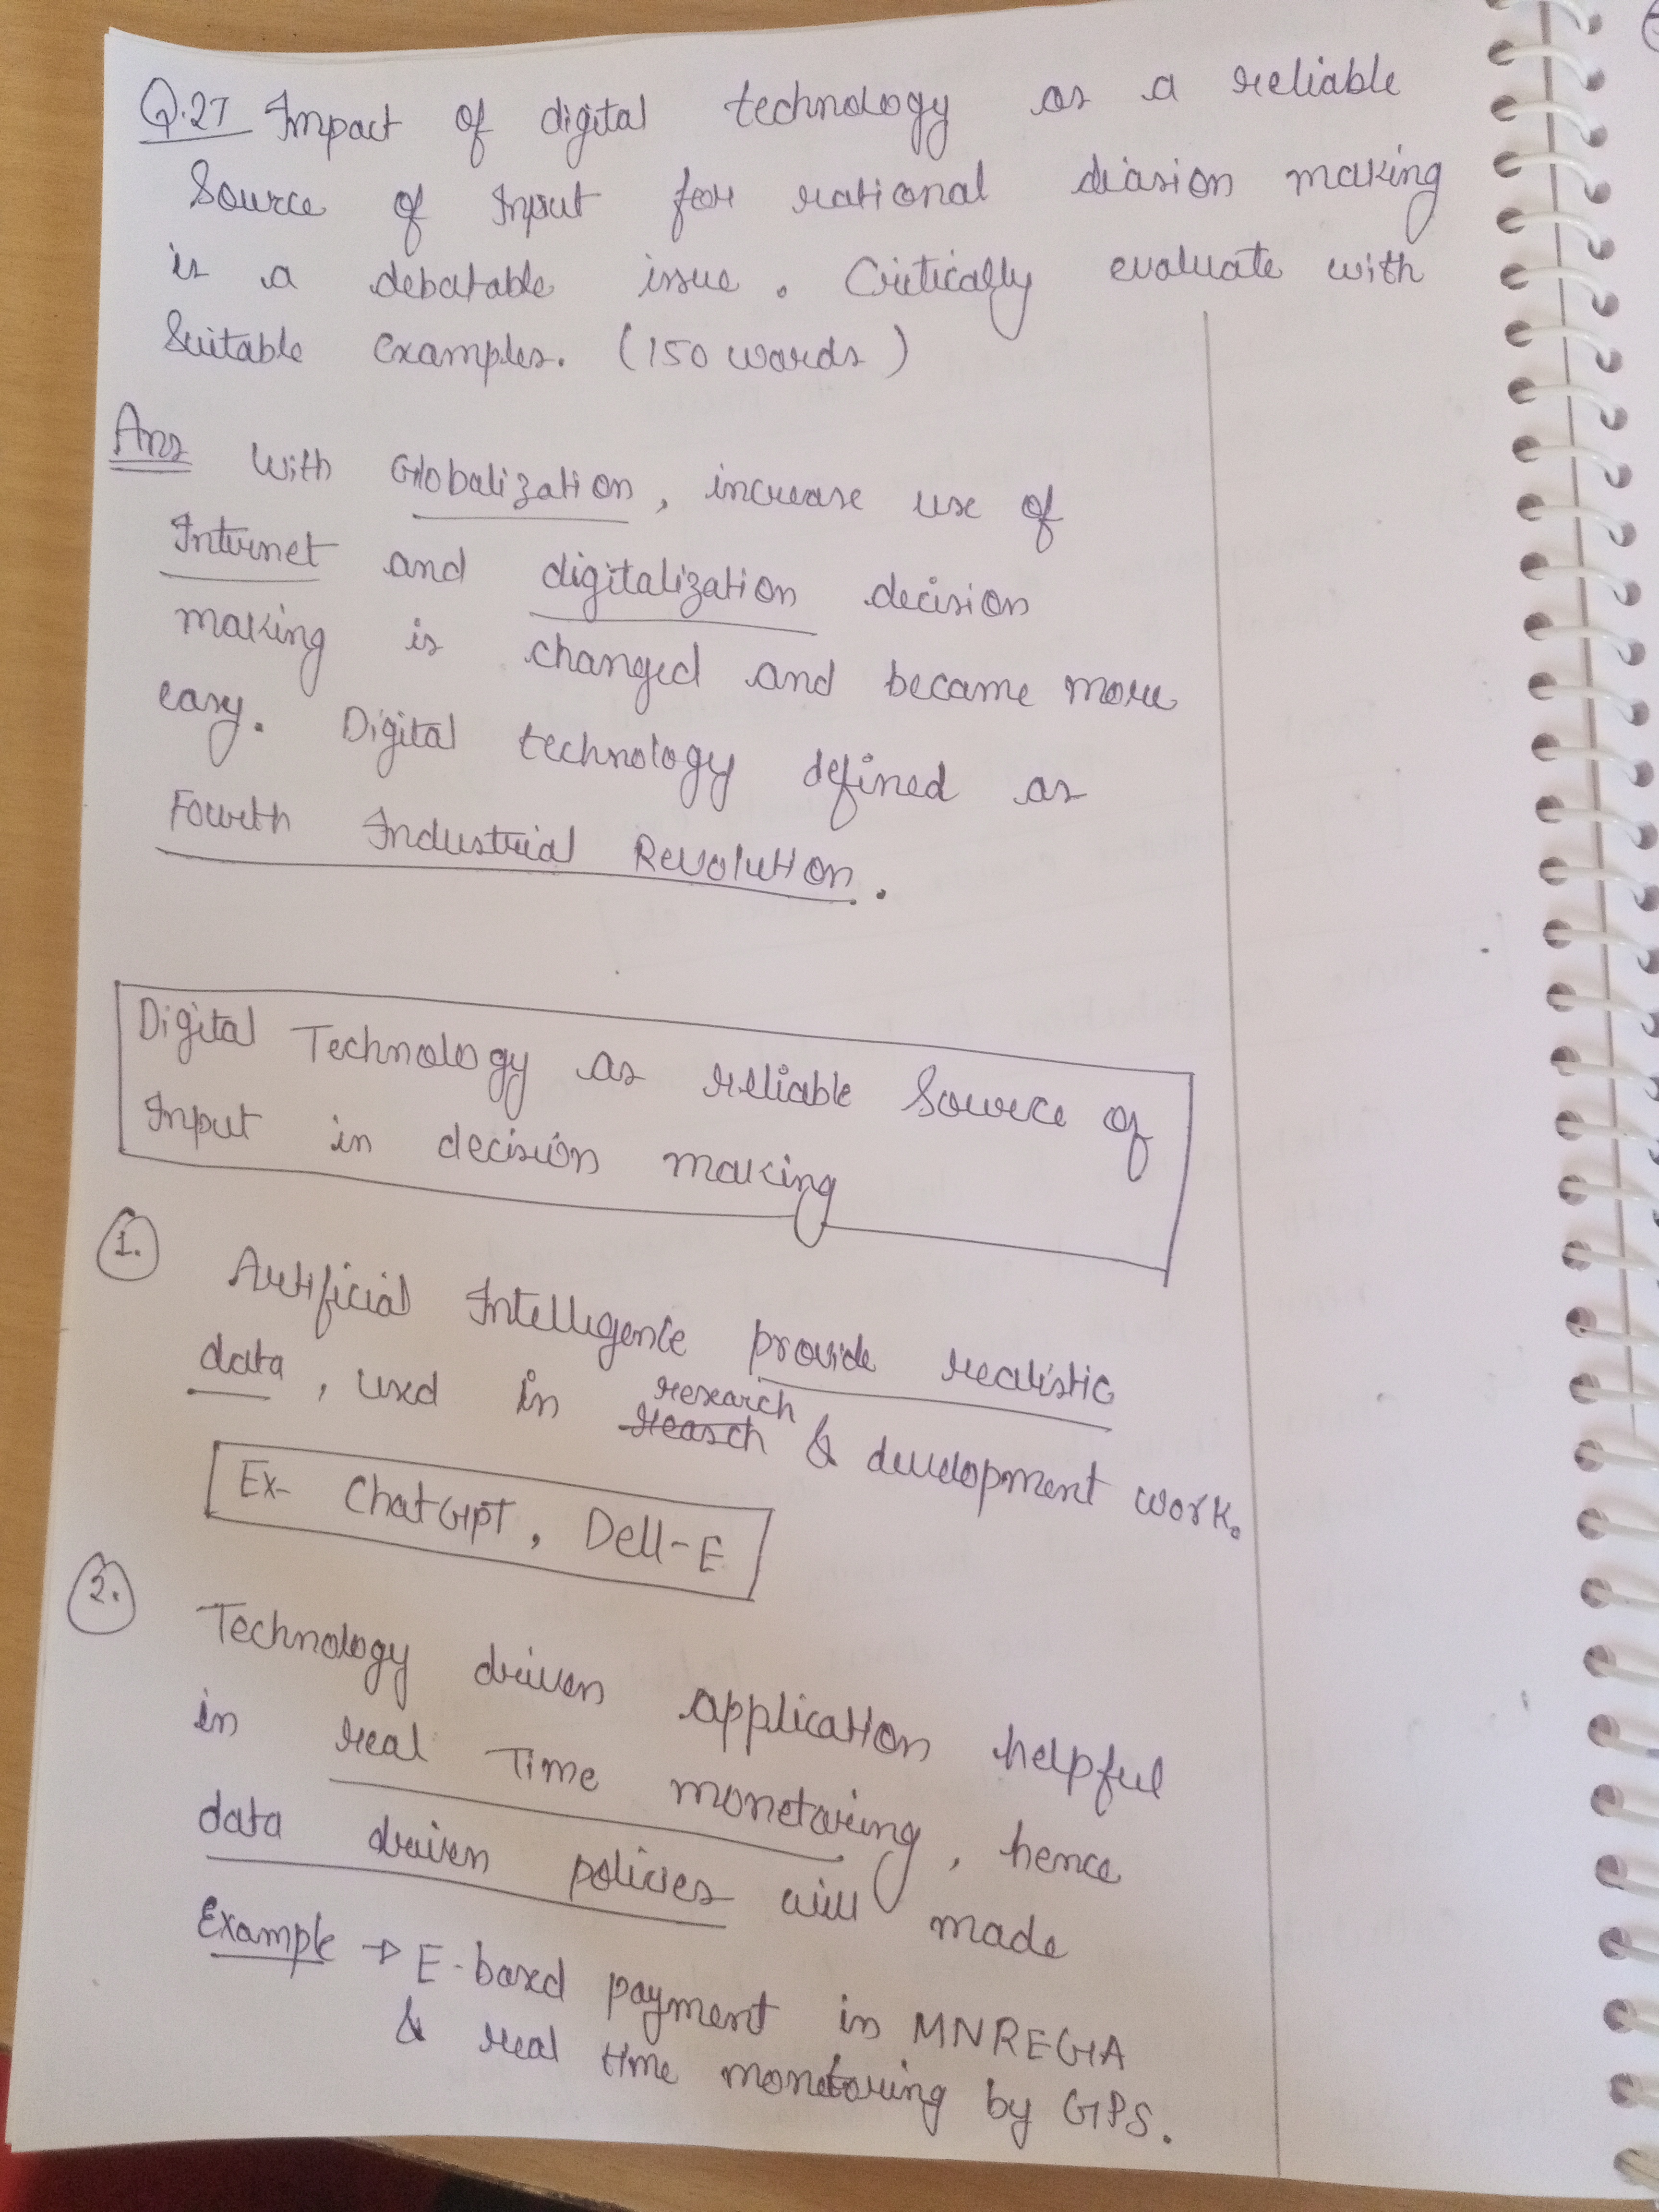 Q.27 Impact of digital technology as a reliable
Source of Input for rational diasion making
is a debatable issue. Critically evaluate with
Suitable examples. (150 words)
Ans With Globalization, increase use of
Internet and digitalization decision
making is changed and became more
easy. Digital technology defined as
Fourth Industrial Revolution.
Digital Technology as reliable Source of
Input in decision making
1. Artificial Intelligence provide realistic
data, used in reasch research & development work.
Ex- ChatGPT, Dell-E
2. Technology driven application helpful
in real Time monetoring, hence
data driven policies will made
Example → E-based payment in MNREGA
& real time monetoring by GPS.